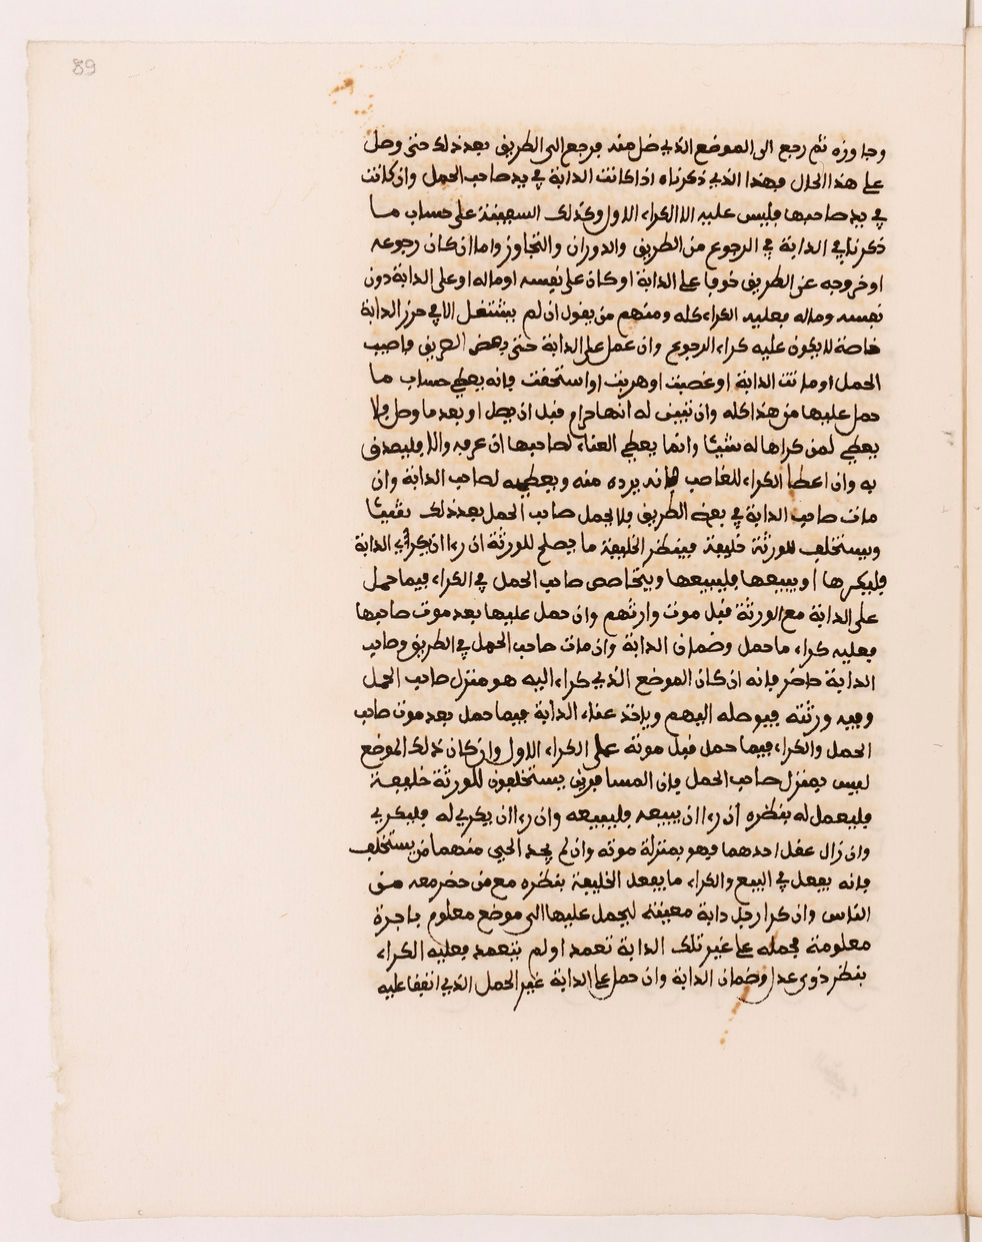 89
وجاوزه ثم رجع الى الموضع الذي ضل منه فرجع الى الطريق بعد ذلك حتى وصل
على هذا الحال فهذا الذي ذكرناه اذا كانت الدابة في يد صاحب الحمل وان كانت
في يد صاحبها فليس عليه الا الكراء الاول وكذلك السفينة على حساب ما
ذكرنا في الدابة في الرجوع من الطريق والدوران والتجاوز واما ان كان رجوعه
او خروجه عن الطريق خوفا على الدابة او كان على نفسه او ماله او على الدابة دون
نفسه وماله فعليه الكراء كله ومنهم من يقول ان لم يشتغل الا في حرز الدابة
خاصة لا يكون عليه كراء الرجوع وان عمل على الدابة حتى بعض الطريق فاصيب
الحمل او ماتت الدابة او غصبت او هربت او استحقت فانه يعطي حساب ما
حمل عليها من هذا كله وان تبين له انها حرام قبل ان يصل او بعد ما وصل فلا
يعطي لمن كراها له شيئا وانما يعطي العناء لصاحبها ان عرفه والا فليصدق
به وان اعطا الكراء للغاصب فانه يرده منه ويعطيه لصاحب الدابة وان
مات صاحب الدابة في بعض الطريق فلا يحمل صاحب الحمل بعد ذلك شيئا
ويستخلف للورثة خليفة فينظر الخليفة ما يصلح للورثة ان رءا ان يكرا الدابة
فليكرها او يبيعها فليبيعها ويتحاصص صاحب الحمل في الكراء فيما حمل
على الدابة مع الورثة قبل موت وارثهم وان حمل عليها بعد موت صاحبها
فعليه كراء ما حمل وضمان الدابة وان مات صاحب الحمل في الطريق وصاحب
الدابة حاضر فانه ان كان الموضع الذي كراء اليه هو منزل صاحب الحمل
وفيه ورثته فيوصله اليهم وياخذ عناء الدابة فيما حمل بعد موت صاحب
الحمل والكراء فيما حمل قبل موته على الكراء الاول وان كان ذلك الموضع
ليس بمنزل صاحب الحمل فان المسافرين يستخلفون للورثة خليفة
فليعمل له بنظره ان رءا ان يبيعه فليبيعه وان رءا ان يكري له فليكري
وان زال عقل احدهما فهو بمنزلة موته وان لم يجد الحيى منهما من يستخلف
فانه يفعل في البيع والكراء ما يفعل الخليفة بنظره مع من حضر معه من
الناس وان كرا رجل دابة معينة ليحمل عليها الى موضع معلوم باجرة
معلومة فحمله على غير تلك الدابة تعمد او لم يتعمد فعليه الكراء
بنظر ذوي عدل وضمان الدابة وان حمل على الدابة غير الحمل الذي اتفقا عليه